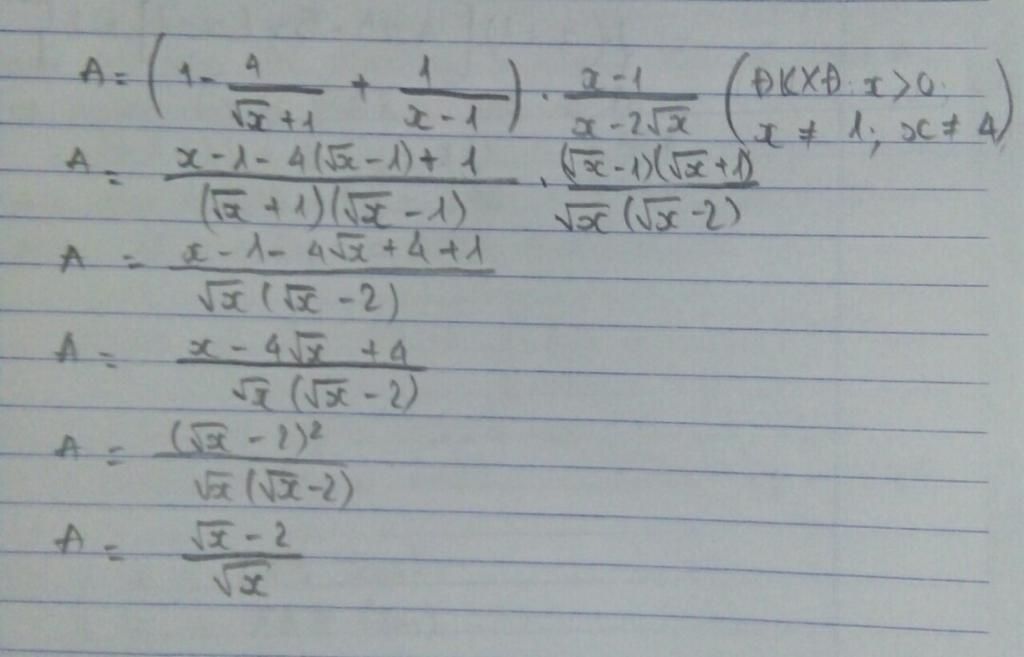 A = ( 1 - 4/(√x + 1) + 1/(x - 1) ) . (x - 1)/(x - 2√x) ( ĐKXĐ: x > 0; x ≠ 1; x ≠ 4 )
A = (x - 1 - 4(√x - 1) + 1)/((√x + 1)(√x - 1)) . ((√x - 1)(√x + 1))/(√x (√x - 2))
A = (x - 1 - 4√x + 4 + 1)/(√x (√x - 2))
A = (x - 4√x + 4)/(√x (√x - 2))
A = (√x - 2)²/(√x (√x - 2))
A = (√x - 2)/√x